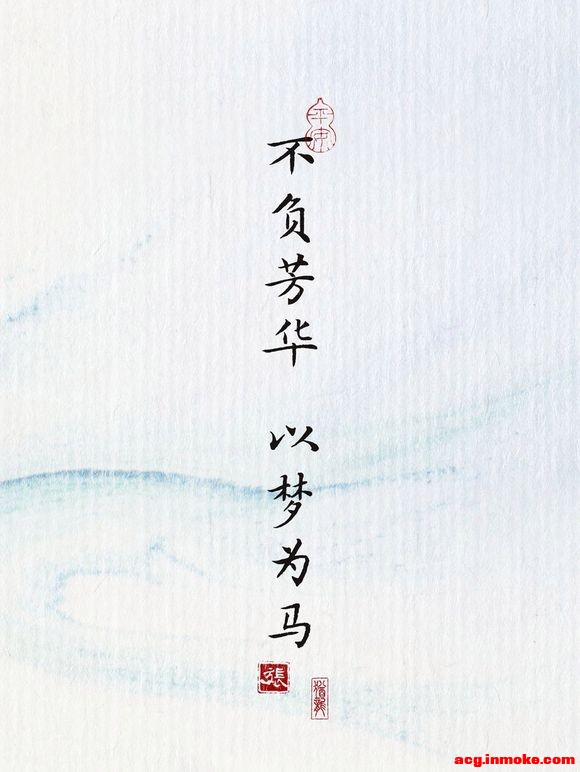 不负芳华 以梦为马
張
acg.inmoke.com